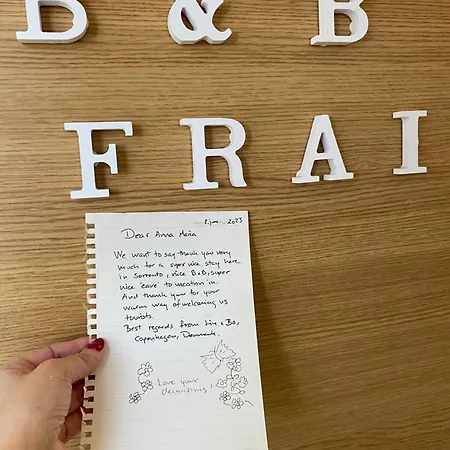 B & B
FRAI
2. june 2023
Dear Anna Maria
We want to say thank you very
much for a super nice stay here
in Sorrento, nice B&B, super
nice 'cave' to vacation in.
And thank you for your
warm way of welcoming us
tourists.
Best regards from Liv & Bo,
Copenhagen, Denmark.
Love your
decorations!